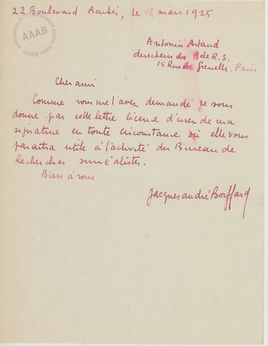 22 Boulevard Barbès, le 12 mars 1925
AAAB
Antonin Artaud
directeur du B de R.S.
15 Rue de Grenelle. Paris
Cher ami
Comme vous me l'avez demandé je vous
donne par cette lettre licence d'user de ma
signature en toute circonstance où elle vous
paraîtra utile à l'activité du Bureau de
Recherches surréalistes.
Bien à vous
Jacques-André Boiffard